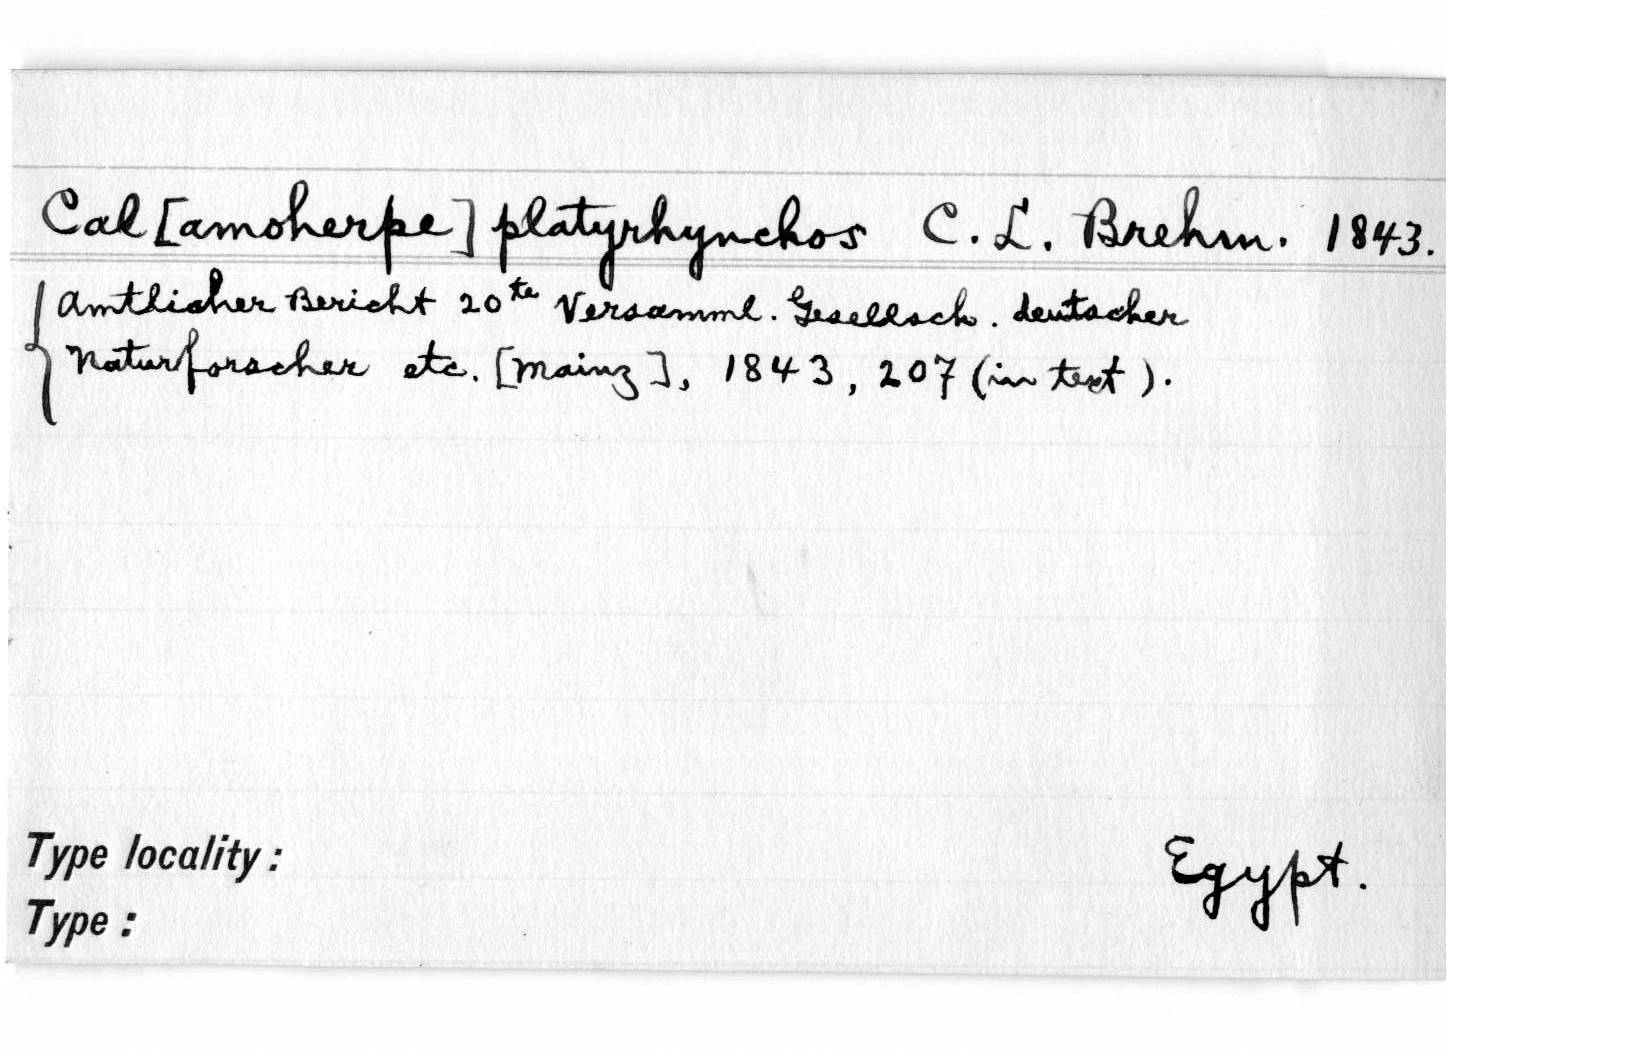 Cal[amoherpe] platyrhynchos C. L. Brehm. 1843.
Amtlicher Bericht 20te Versamml. Gesellsch. deutscher
Naturforscher etc. [Mainz], 1843, 207 (in text).
Type locality: Egypt.
Type: